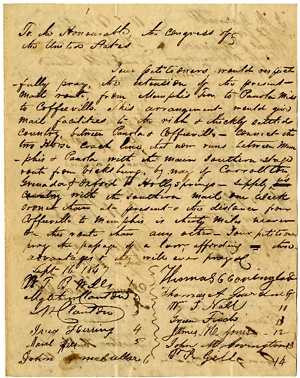 To the Honourable, the Congress of
the United States
Your petitioners, would respect
fully pray the extension of the present
mail route from Memphis Ten to Panola Miss
to Coffeeville. This arrangement would give
mail facilities to the rich & thickly settled
Country between Panola & Coffeeville - Connect the
two Horse Coach line that now runs between Mem
phis & Panola with the main Southern Stage
route from Vicksburg, by way of Carrollton
Grenada Oxford & Hollysprings - supply
Country with the Southern mail one week
sooner than at present & the distance from
Coffeeville to Memphis is thirty miles nearer
on this route than any other - Your petitioners
pray the passage of a law, affording them
advantages & they will ever pray &c
Sept 16 1847
Thomas C
Thomas
Wm J Hall
3
4
5
6
11
James M Jones 12
John M Covington 13
Gill 14